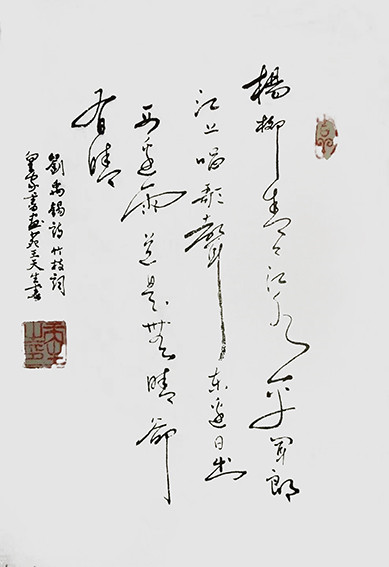 楊柳青青江水平聞郎
江上唱歌聲東邊日出
西邊雨道是無晴卻
有晴
劉禹錫詩竹枝詞
皇家書畫苑王天生書